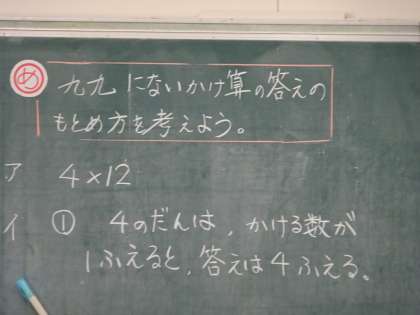 め 九九にないかけ算の答えの
もとめ方を考えよう。
ア 4×12
イ ① 4のだんは，かける数が
1ふえると，答えは4ふえる。